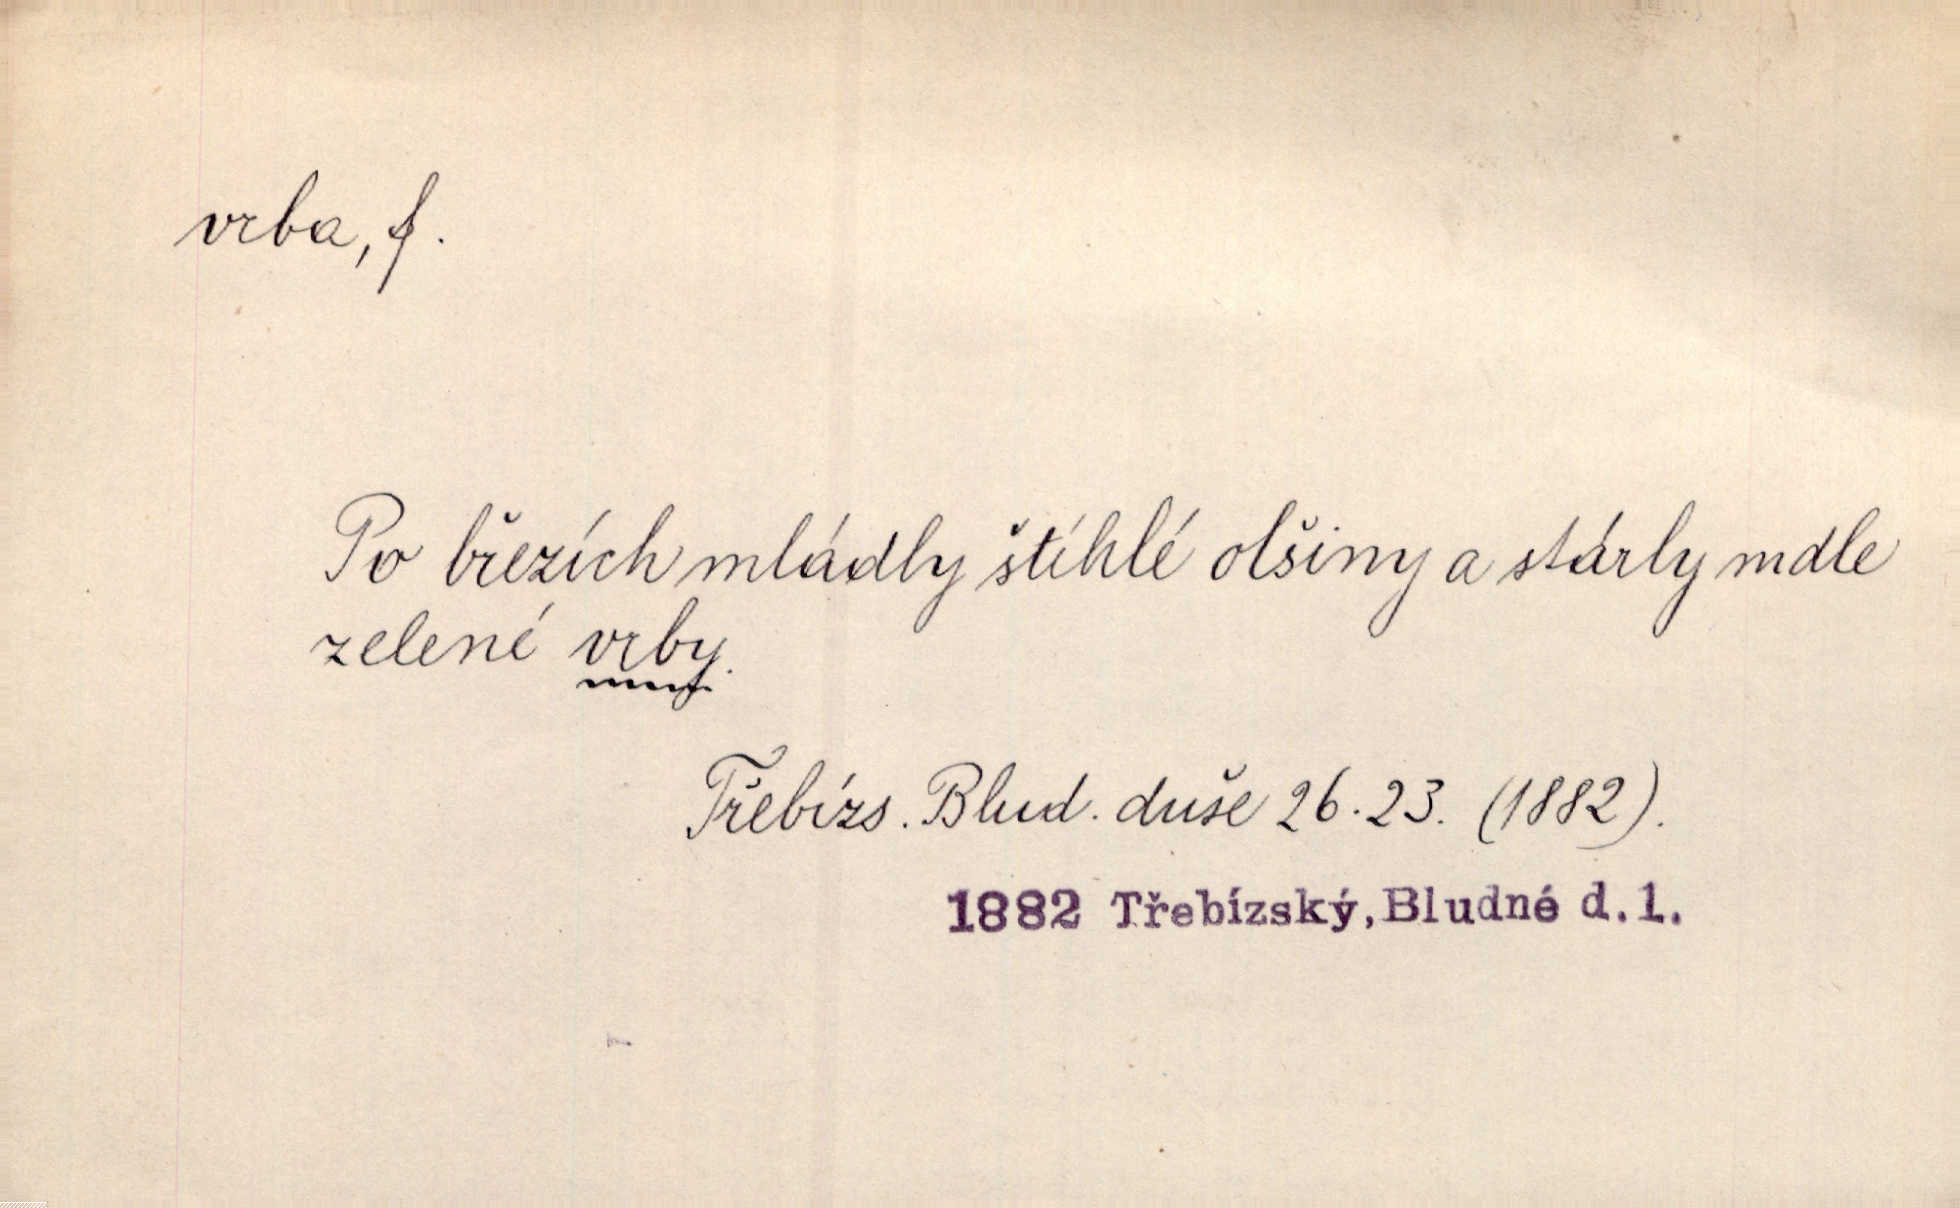 vrba, f.
Po březích mládly štíhlé olšiny a stárly mdle
zelené vrby.
Třebízs. Blud. duše 26.23. (1882).
1882 Třebízský, Bludné d.1.